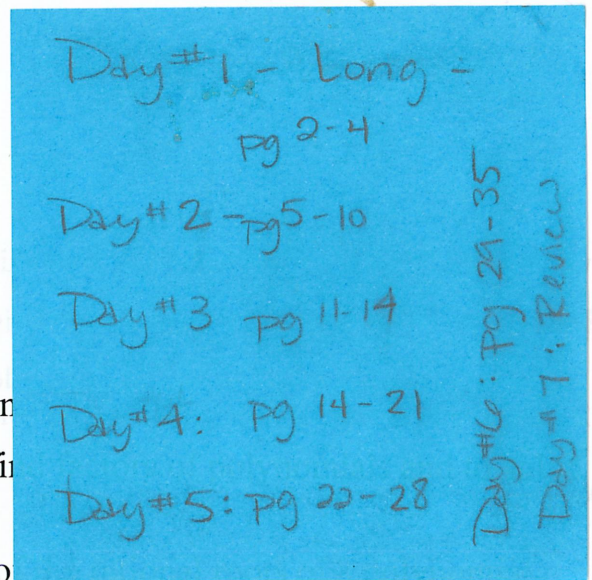 Day #1 - Long -
pg 2-4
Day # 2 - pg 5-10
Day # 3 pg 11-14
Day # 4: pg 14-21
Day # 5: pg 22-28
Day #6: pg 29-35
Day #7: Review